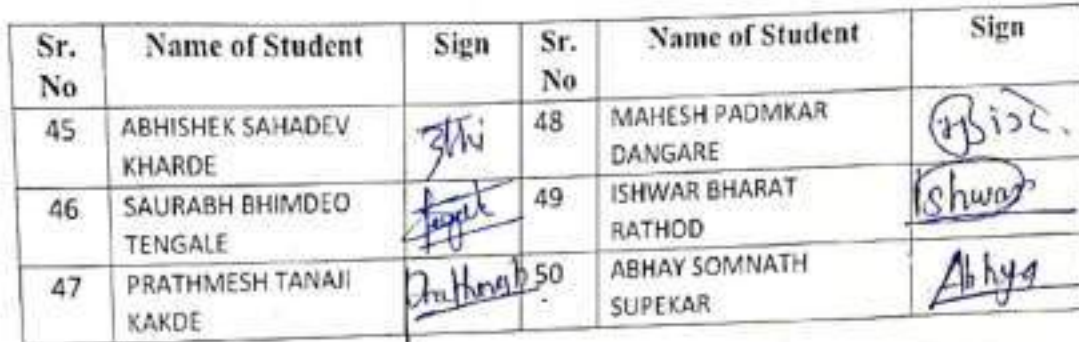 Sr. No Name of Student Sign Sr. No Name of Student Sign
45 ABHISHEK SAHADEV KHARDE 48 MAHESH PADMKAR DANGARE
46 SAURABH BHIMDEO TENGALE 49 ISHWAR BHARAT RATHOD Ishwar
47 PRATHMESH TANAJI KAKDE Prathmesh 50 ABHAY SOMNATH SUPEKAR Abhya